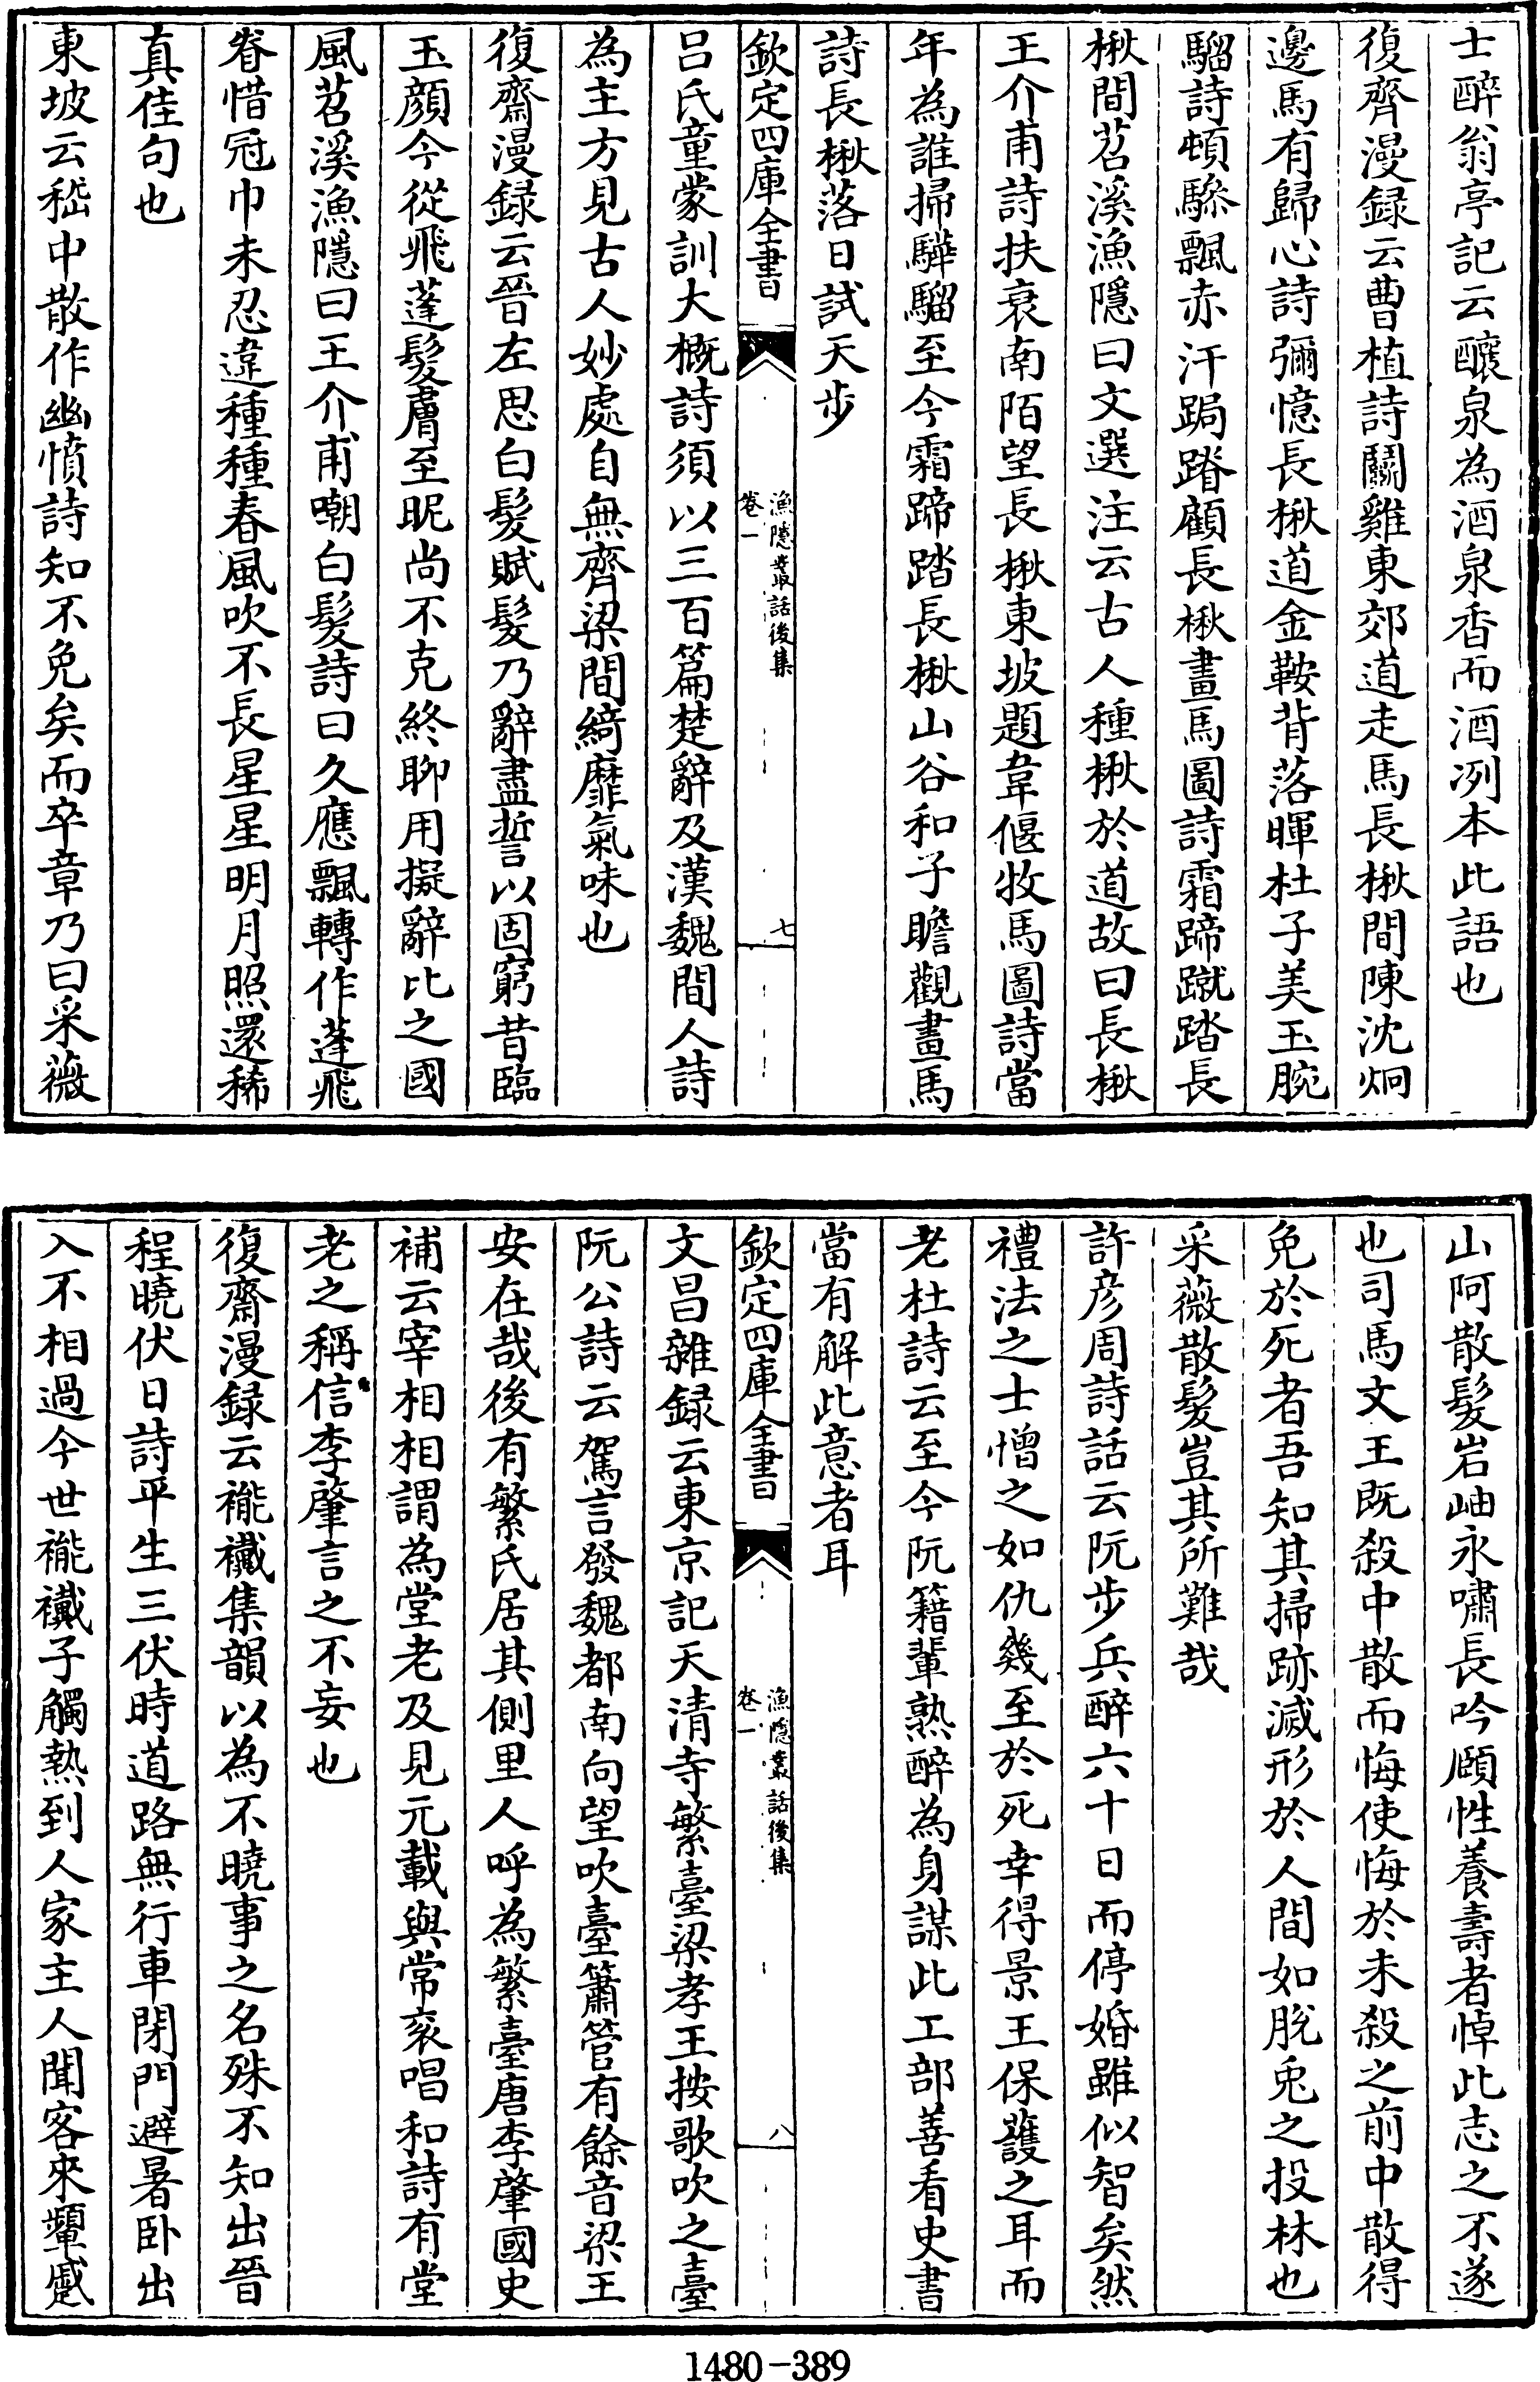 士醉翁亭記云釀泉為酒泉香而酒冽本此語也
復齊漫録云曹植詩鬭雞東郊道走馬長楸間陳沈炯
邊馬有歸心詩彌憶長楸道金鞍背落暉杜子美玉腕
騮詩頓驂飄赤汗跼蹐顧長楸畫馬圖詩霜蹄蹴踏長
楸間苕溪漁隱曰文選注云古人種楸於道故曰長楸
王介甫詩扶衰南陌望長楸東坡題韋偃牧馬圖詩當
年為誰掃驊騮至今霜蹄踏長楸山谷和子瞻觀畫馬
詩長楸落日試天步
欽定四庫全書
漁隱叢話後集
卷一
七
吕氏童蒙訓大概詩須以三百篇楚辭及漢魏間人詩
為主方見古人妙處自無齊梁間綺靡氣味也
復齋漫録云晉左思白髮賦髮乃辭盡誓以固窮昔臨
玉顔今從飛蓬髮膚至昵尚不克終聊用擬辭比之國
風苕溪漁隱曰王介甫嘲白髮詩曰久應飄轉作蓬飛
眷惜冠巾未忍違種種春風吹不長星星明月照還稀
真佳句也
東坡云嵇中散作幽憤詩知不免矣而卒章乃曰采薇
山阿散髮岩岫永嘯長吟頤性養壽者悼此志之不遂
也司馬文王既殺中散而悔使悔於未殺之前中散得
免於死者吾知其掃跡滅形於人間如脱兎之投林也
采薇散髮豈其所難哉
許彦周詩話云阮步兵醉六十日而停婚雖似智矣然
禮法之士憎之如仇幾至於死幸得景王保護之耳而
老杜詩云至今阮籍輩熟醉為身謀此工部善看史書
當有解此意者耳
欽定四庫全書
漁隱叢話後集
卷一
八
文昌雜録云東京記天清寺繁臺梁孝王按歌吹之臺
阮公詩云駕言發魏都南向望吹臺簫管有餘音梁王
安在哉後有繁氏居其側里人呼為繁臺唐李肇國史
補云宰相相謂為堂老及見元載與常衮唱和詩有堂
老之稱信李肇言之不妄也
復齋漫録云褦襶集韻以為不曉事之名殊不知出晉
程曉伏日詩平生三伏時道路無行車閉門避暑卧出
入不相過今世褦襶子觸熱到人家主人聞客來顰蹙
1480-389